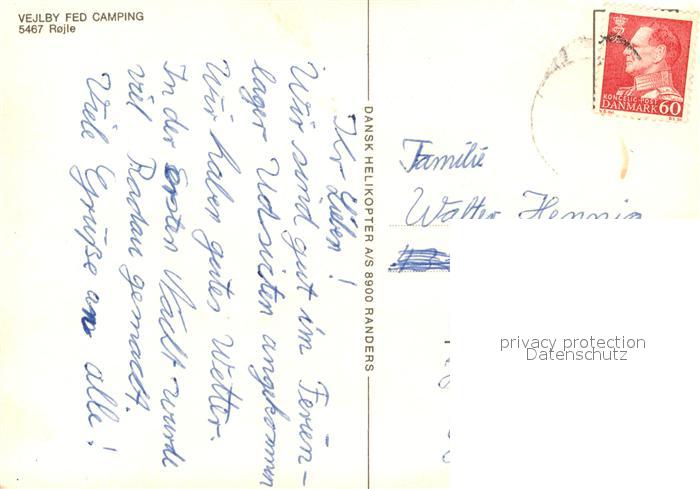 VEJLBY FED CAMPING
5467 Røjle
Ihr Lieben!
Wir sind gut im Ferien-
lager Udsieten angekommen
Wir haben gutes Wetter.
In der ersten Nacht wurde
viel Radau gemacht.
Viele Grüße an alle!
DANSK HELIKOPTER A/S 8900 RANDERS
KONGELIG POST
DANMARK 60
Familie
Walter Hennig
privacy protection
Datenschutz